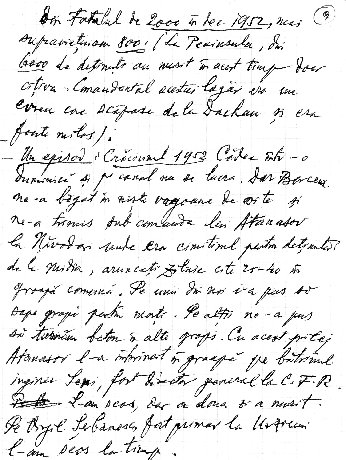 Din totalul de 2000 în dec 1952, mai
supraviețuiam 800! (La Peninsula, din
6000 de deținuți au murit în acest timp doar
câțiva. Comandantul acestui lagăr era un
evreu care scăpase de la Dachau și era
foarte milos)!
– Un episod: Crăciunul 1952 cădea într-o
duminică și pe canal nu se lucra. Dar Borcea
ne-a băgat în niște vagoane de vite și
ne-a trimis sub comanda lui Atanasov
la Năvodari unde era cimitirul pentru deținuții
de la Midia, aruncați zilnic câte 20-40 în
groapă comună. Pe unii din noi i-a pus să
sape gropi pentru morți. Pe alții ne-a pus
să turnăm beton în alte gropi. Cu acest prilej
Atanasov l-a îmbrâncit în groapă pe bătrânul
inginer, fost director general la C.F.R.
L-am scos, dar a doua zi a murit.
Pe Virgil Șerbănescu fost primar la Urziceni
l-am scos la timp.